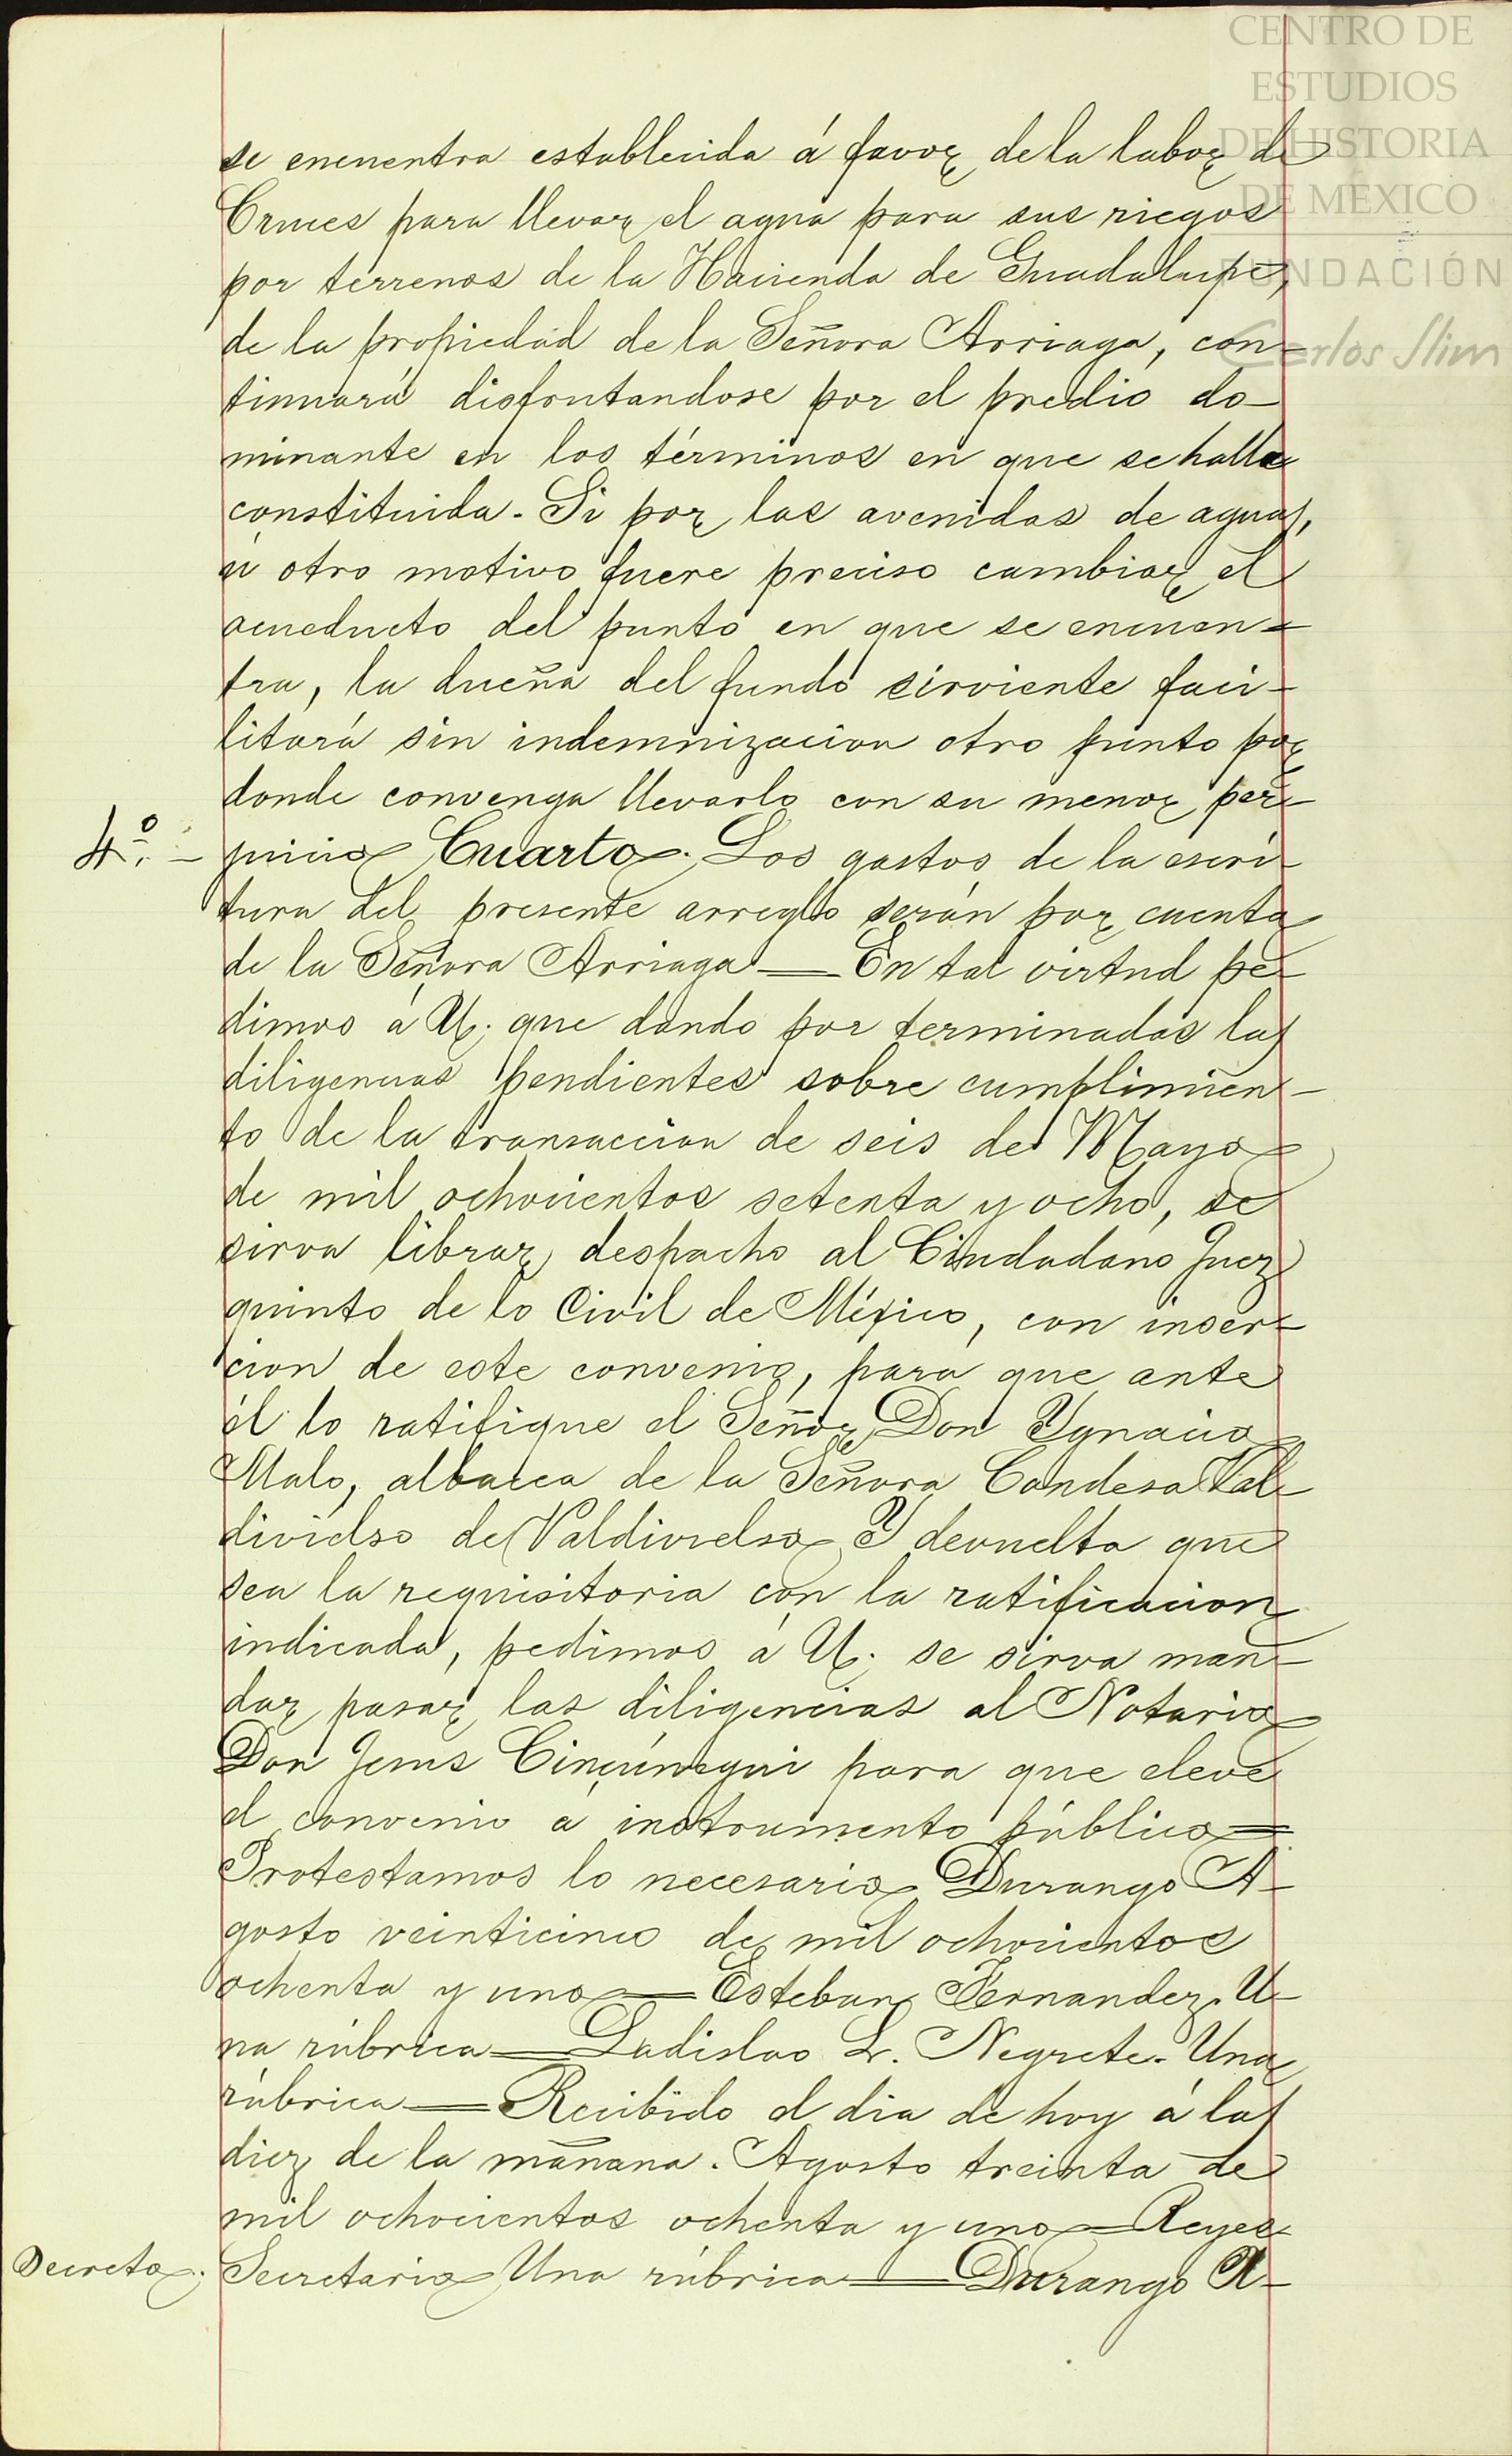 CENTRO DE
ESTUDIOS
DE HISTORIA
DE MÉXICO
FUNDACIÓN
Carlos Slim
se encuentra establecida á favor de la labor de
Cruces para llevar el agua para sus riegos
por terrenos de la Hacienda de Guadalupe,
de la propiedad de la Señora Arriaga, con-
tinuará disfrutandose por el predio do-
minante en los términos en que se halla
constituida. Si por las avenidas de aguas,
ú otro motivo fuere preciso cambiar el
acueducto del punto en que se encuen-
tra, la dueña del fundo sirviente faci-
litará sin indemnizacion otro punto por
donde convenga llevarlo con su menor per-
4º.- juicio Cuarto. Los gastos de la escri-
tura del presente arreglo serán por cuenta
de la Señora Arriaga — En tal virtud pe-
dimos á U. que dando por terminadas las
diligencias pendientes sobre cumplimien-
to de la transaccion de seis de Mayo
de mil ochocientos setenta y ocho, se
sirva librar despacho al Ciudadano Juez
quinto de lo Civil de México, con inser-
cion de este convenio, para que ante
él lo ratifique el Señor Don Ygnacio
Malo, albacea de la Señora Condesa Val-
divielso de Valdivielso Y devuelta que
sea la requisitoria con la ratificacion
indicada, pedimos á U. se sirva man-
dar pasar las diligencias al Notario
Don Jesus para que eleve
el convenio á instrumento público =
Protestamos lo necesario Durango A-
gosto veinticinco de mil ochocientos
ochenta y uno = Esteban Fernandez. U-
na rúbrica = Ladislao L. Negrete. Una
rúbrica = Recibido el dia de hoy á las
diez de la mañana. Agosto treinta de
mil ochocientos ochenta y uno = Reyes
Decreto. Secretario Una rúbrica = Durango A-